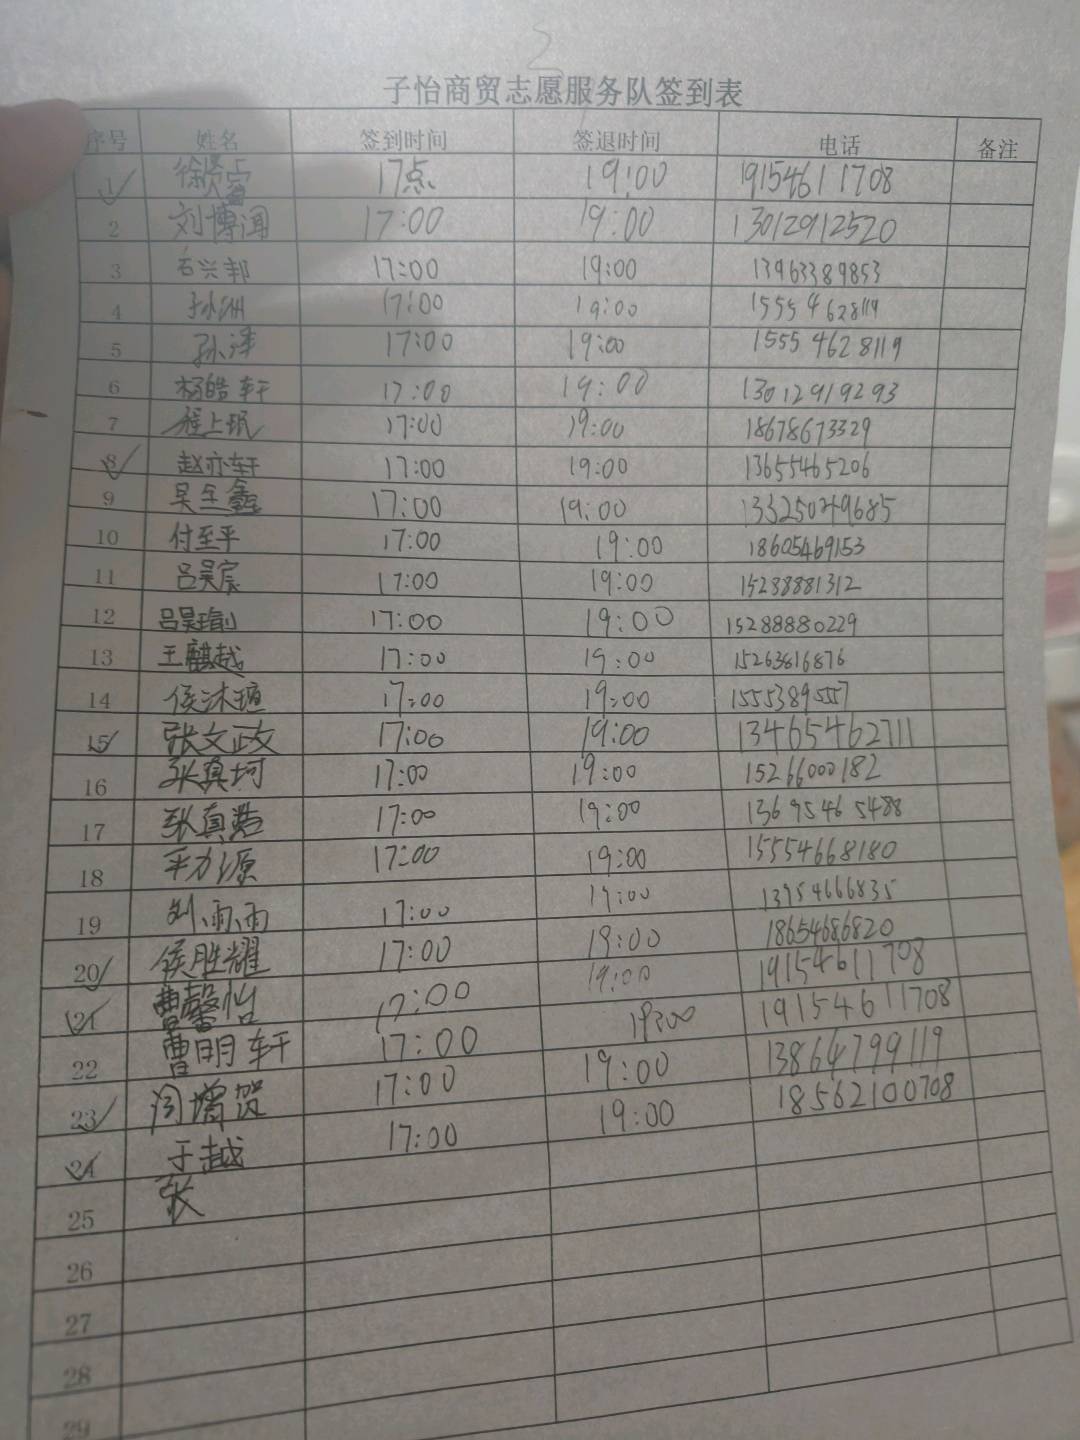 2
子怡商贸志愿服务队签到表
序号 姓名 签到时间 签退时间 电话 备注
1 17点 19:00 19154611708
2 刘博闻 17:00 19:00 13012912520
3 石兴邦 17:00 19:00 13963389853
4 孙洲 17:00 19:00 15554628119
5 孙泽 17:00 19:00 15554628119
6 杨皓轩 17:00 19:00 13012919293
7 程上珉 17:00 19:00 18678673329
8 赵亦轩 17:00 19:00 13655465206
9 吴全鑫 17:00 19:00 13325049685
10 付至平 17:00 19:00 18605469153
11 吕昊宸 17:00 19:00 15288881312
12 吕昊 17:00 19:00 15288880229
13 王麒越 17:00 19:00 15263816876
14 侯沐瑄 17:00 19:00 1555389557
15 张文政 17:00 19:00 13465462711
16 张真坷 17:00 19:00 15266000182
17 张真 17:00 19:00 13695465488
18 17:00 19:00 15554668180
19 刘雨雨 17:00 19:00 13954666835
20 侯胜耀 17:00 19:00 18654686820
21 曹馨怡 17:00 19:00 19154611708
22 曹明轩 17:00 19:00 19154611708
23 闫增贺 17:00 19:00 13864799119
24 于越 17:00 19:00 18562100708
25 张
26
27
28
29